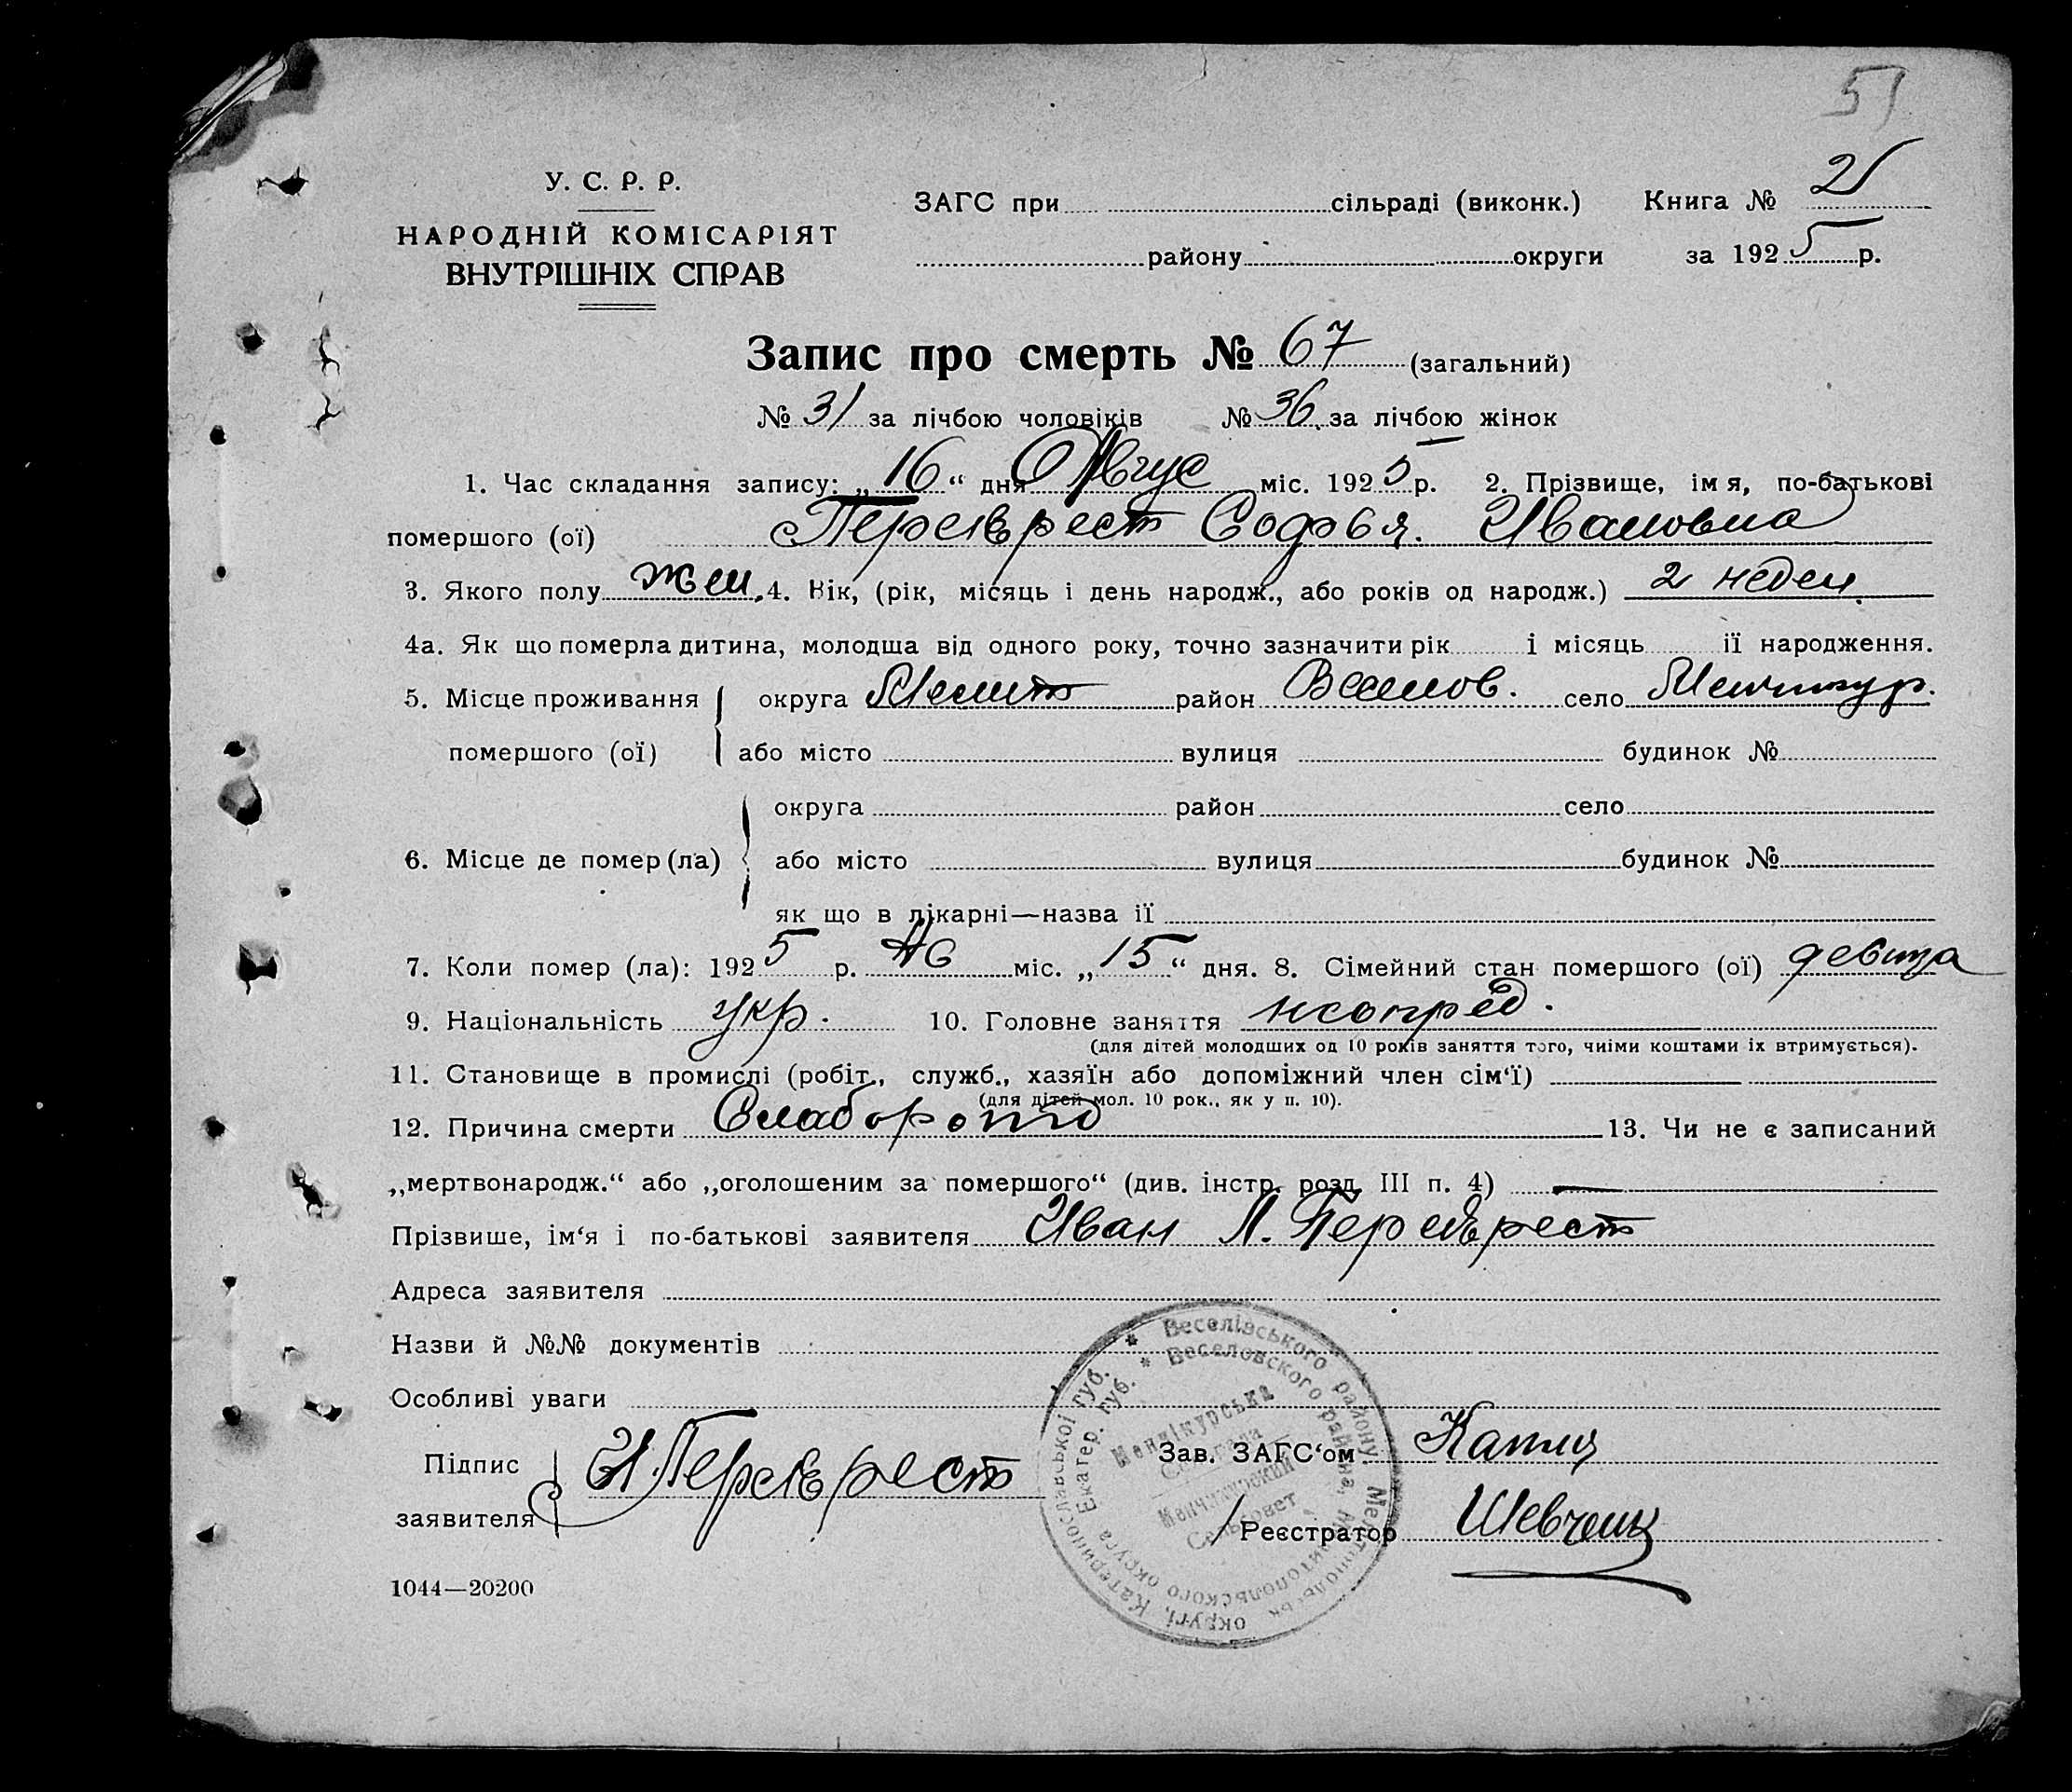 51
У. С. Р. Р.
НАРОДНІЙ КОМІСАРІЯТ
ВНУТРІШНІХ СПРАВ
ЗАГС при сільраді (виконк.) Книга № 21
району округи за 1925 р.
Запис про смерть № 67 (загальний)
№ 31 за лічбою чоловіків № 36 за лічбою жінок
1. Час складання запису: „16“ дня Авгус міс. 1925 р. 2. Прізвище, імя, по-батькові
помершого (ої) Переврест Софья. Ивановна
3. Якого полу жен. 4. Вік, (рік, місяць і день народж., або років од народж.) 2 недел.
4а. Як що померла дитина, молодща від одного року, точно зазначити рік і місяць її народження.
5. Місце проживання округа Мелит район Веселов. село Менчикур.
помершого (ої) або місто вулиця будинок №
округа район село
6. Місце де помер (ла) або місто вулиця будинок №
як що в лікарні—назва її
7. Коли помер (ла): 1925 р. Ав міс. „15“ дня. 8. Сімейний стан помершого (ої) девица
9. Національність укр. 10. Головне заняття
(для дітей молодших од 10 років заняття того, чиїми коштами їх втримується).
11. Становище в промислі (робіт., служб., хазяїн або допоміжний член сім‘ї)
(для дітей мол. 10 рок., як у п. 10).
12. Причина смерти 13. Чи не є записаний
„мертвонародж.“ або „оголошеним за помершого“ (див. інстр. розд. III п. 4) —
Прізвише, ім‘я і по-батькові заявителя Иван Л. Переврест
Адреса заявителя
Назви й №№ документів
Особливі уваги
Підпис заявителя И Переврест
Зав. ЗАГС‘ом
Реєстратор Шевченк
* Веселівського району Мелітопольськ округі, Катеринославської губ.
* Веселовского района, Мелитопольского округа Екатер. губ.
Менчікурська
Сельрада
Менчикурский
Сельсовет
1044—20200